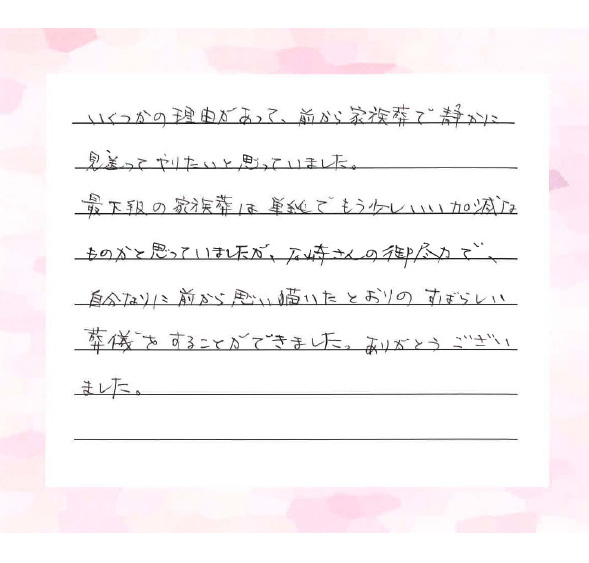 いくつかの理由があって、前から家族葬で静かに
見送ってやりたいと思っていました。
最下級の家族葬は単純でもう少しいいい加減な
ものかと思っていましたが、石崎さんの御尽力で、
自分なりに前から思い描いたとおりのすばらしい
葬儀をすることができました。ありがとうござい
ました。